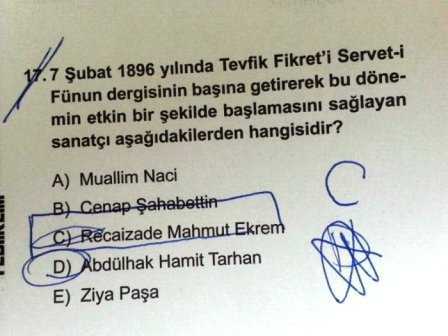 17. 7 Şubat 1896 yılında Tevfik Fikret'i Servet-i
Fünun dergisinin başına getirerek bu döne-
min etkin bir şekilde başlamasını sağlayan
sanatçı aşağıdakilerden hangisidir?
A) Muallim Naci
B) Cenap Şahabettin
C) Recaizade Mahmut Ekrem
D) Abdülhak Hamit Tarhan
E) Ziya Paşa
C